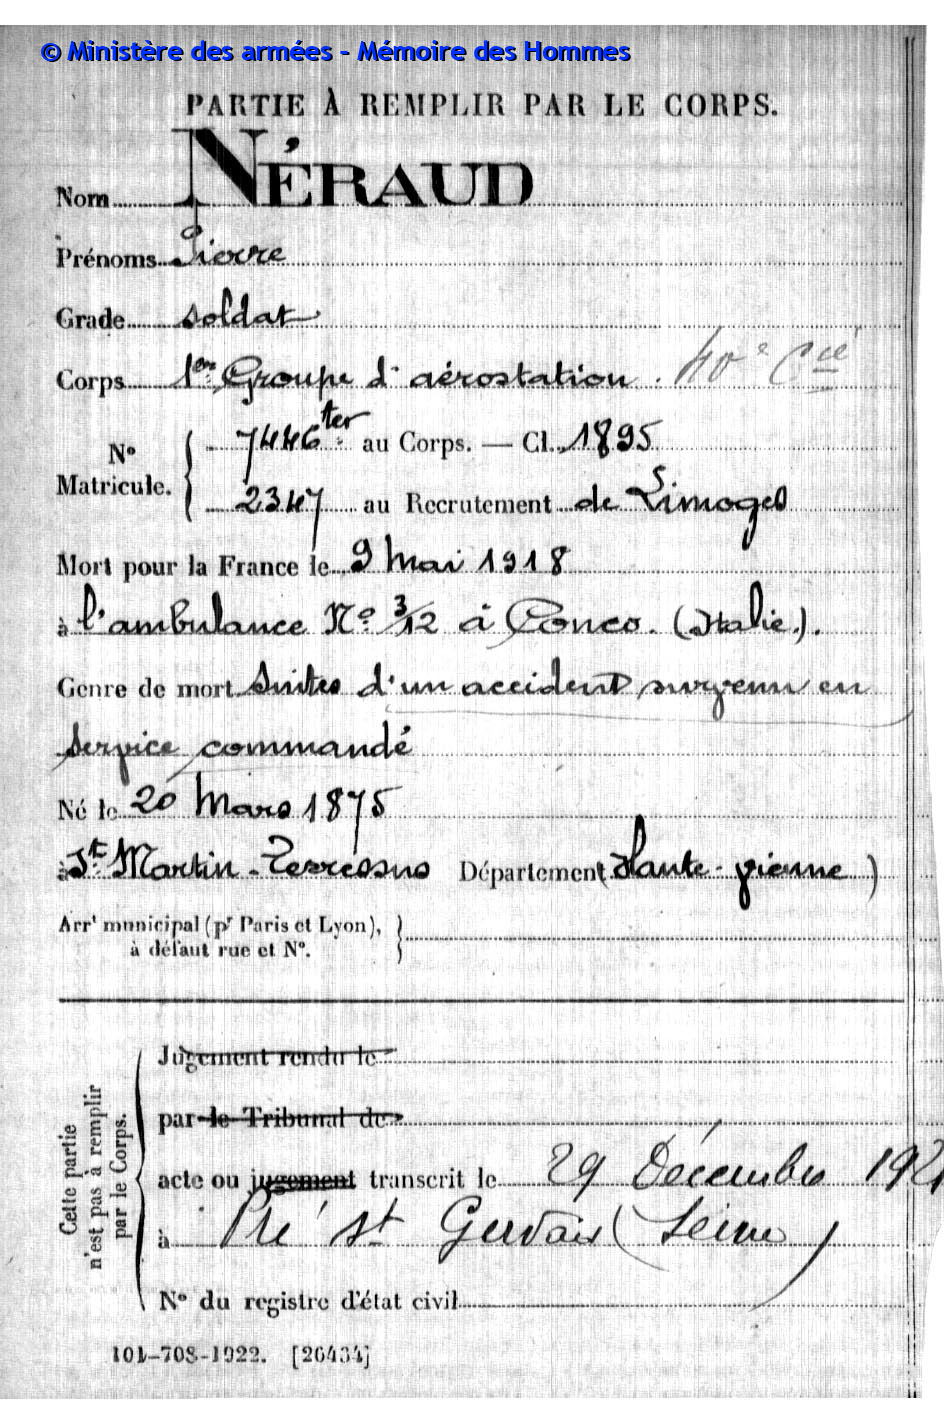 © Ministère des armées - Mémoire des Hommes
PARTIE À REMPLIR PAR LE CORPS.
Nom NÉRAUD
Prénoms Pierre
Grade soldat
Corps 1er Groupe d'aérostation. 40e Cie
N° Matricule. { 7446 ter au Corps. — Cl. 1895
2347 au Recrutement de Limoges
Mort pour la France le 9 Mai 1918
à l'ambulance N° 3/12 à Conco. (Italie).
Genre de mort Suites d'un accident survenu en
service commandé
Né le 20 Mars 1875
à St Martin-Terressus Département (Haute-vienne)
Arrt municipal (pr Paris et Lyon),
à défaut rue et N°. }
Cette partie
n'est pas à remplir
par le Corps.
Jugement rendu le
par le Tribunal de
acte ou jugement transcrit le 29 Décembre 192
à Pré St Gervais (Seine)
N° du registre d'état civil
101-708-1922. [26434]